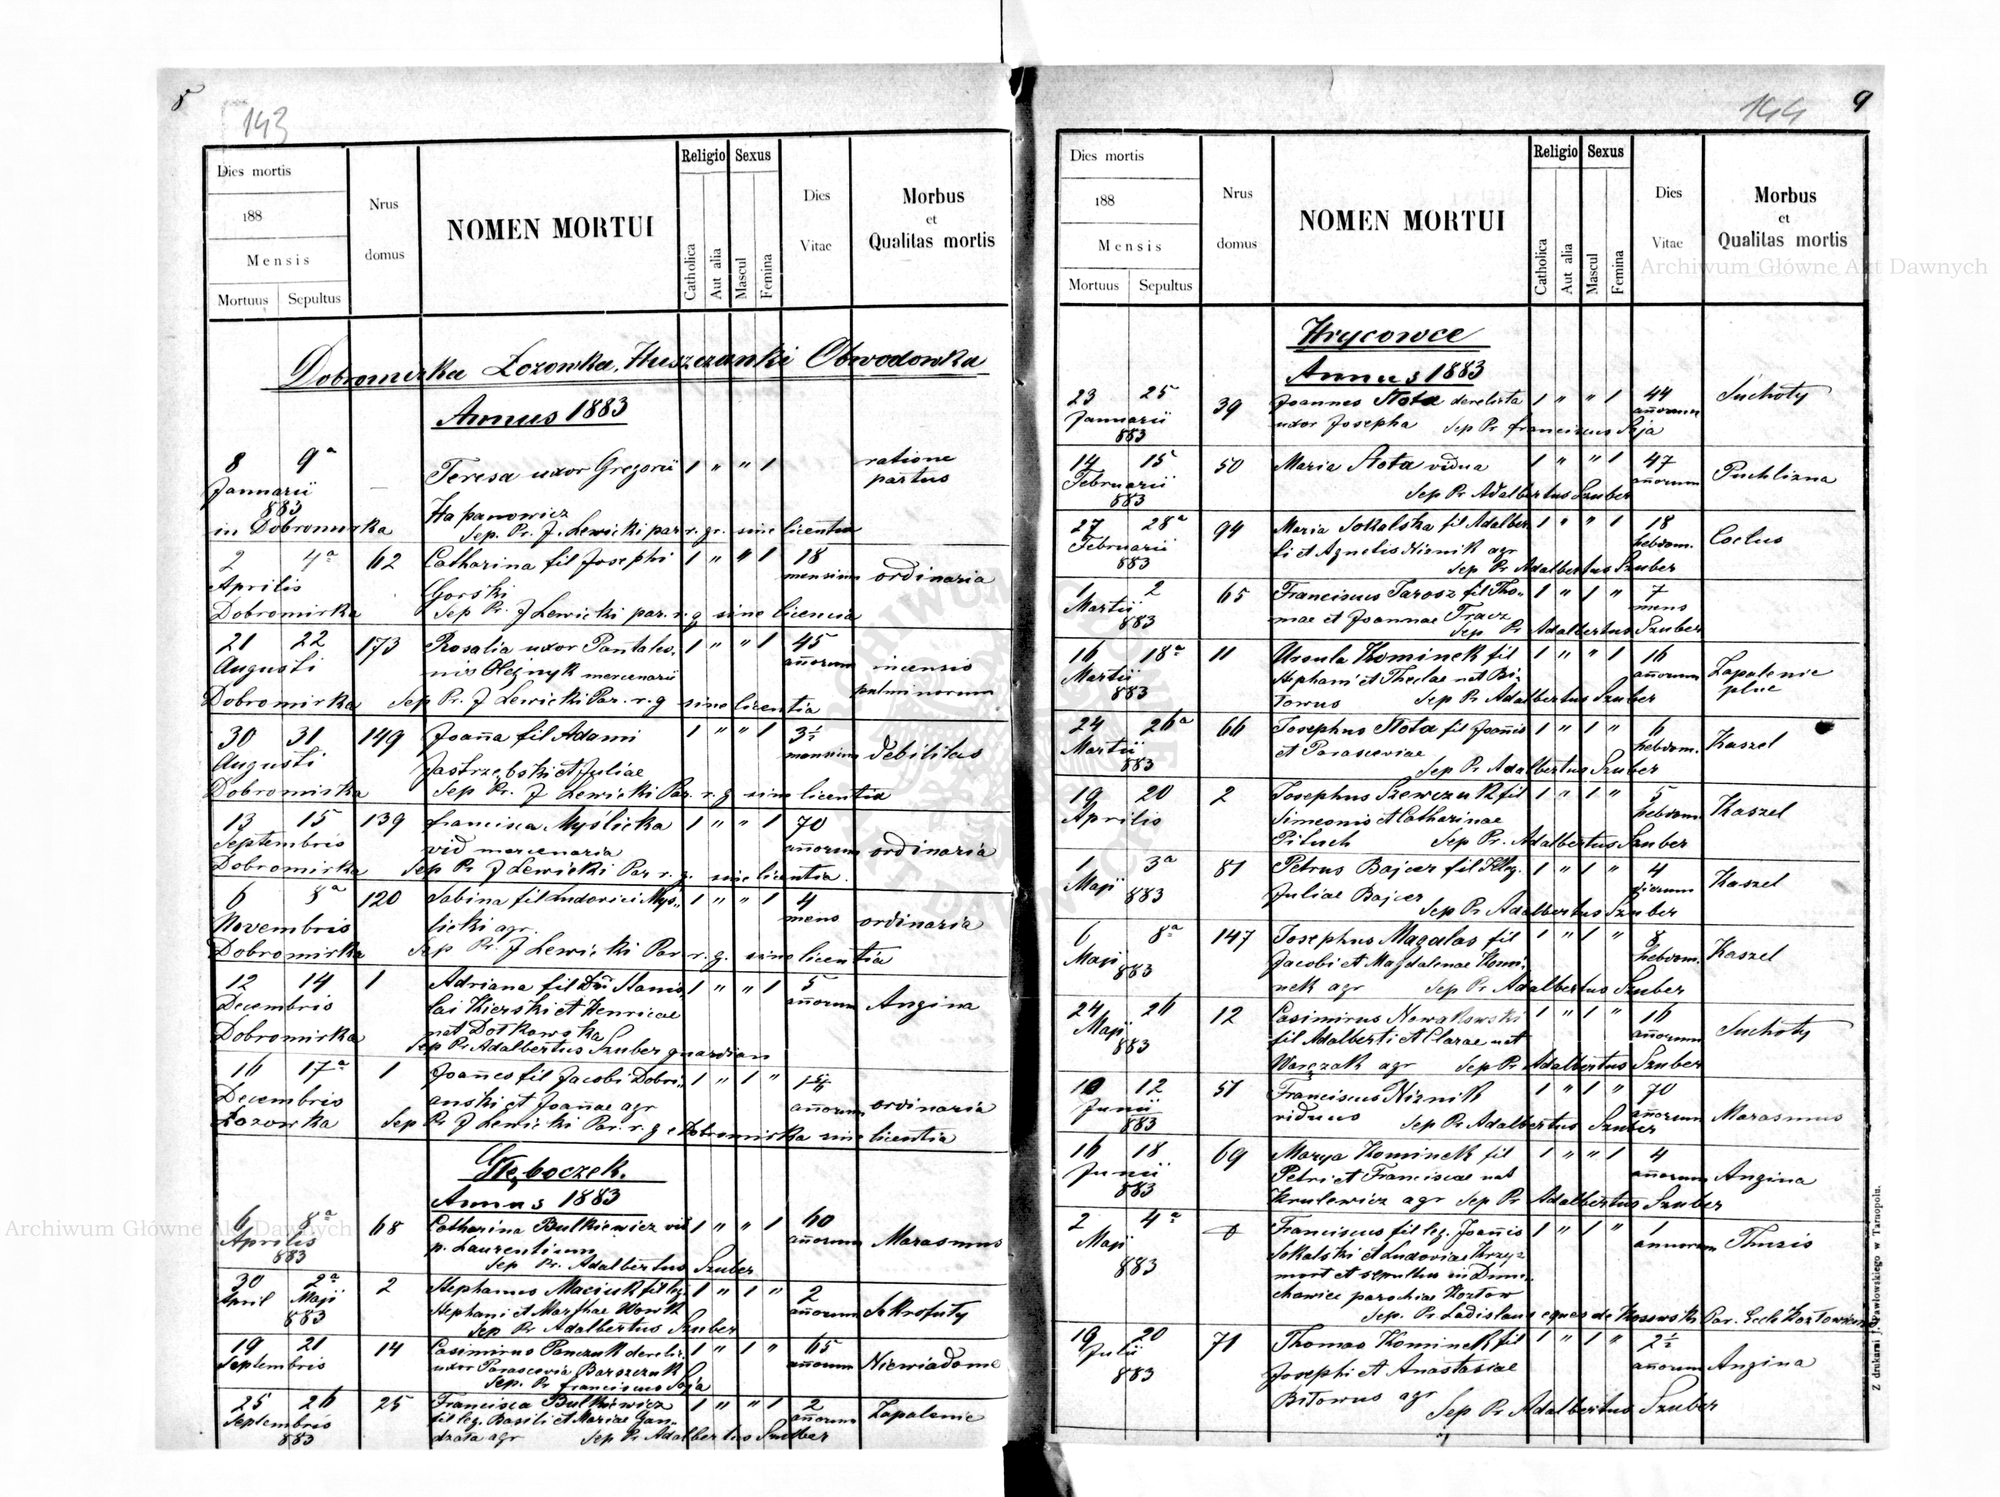 8
143
Dies mortis
188
Mensis
Mortuus Sepultus
Nrus
domus
NOMEN MORTUI
Religio
Catholica
Aut alia
Sexus
Mascul
Femina
Dies
Vitae
Morbus
et
Qualitas mortis
Dobromirka Łozowka, Huszczanki Obwodowka
Annus 1883
8 9a Teresa uxor Gregorii 1 " " 1 ratione
Januarii Hapanowicz partus
883
in Dobromirka Sep. Pr. J. Lewicki par. r. gr. sine licentia
2 4a 62 Catharina fil Josephi 1 " " 1 18
Aprilis Gorski mensium ordinaria
Dobromirka Sep Pr. J Lewicki par. r. g sine licencia
21 22 173 Rosalia uxor Pantaleo- 1 " " 1 45
Augusti nis Olejnyk mercenarii añorum incensio
pulminorum
Dobromirka Sep Pr. J Lewicki Par. r. g sine licentia
30 31 149 Joaña fil Adami 1 " " 1 3½
Augusti Jastrzębski et Juliae mensium debilitas
Dobromirka Sep Pr. J Lewicki Par. r. g sine licentia
13 15 139 Francisca Myślicka 1 " " 1 70
Septembris vid mercenaria añorum ordinaria
Dobromirka Sep Pr J Lewicki Par r. g. sine licentia.
6 8a 120 Sabina fil Ludovici Myś- 1 " " 1 4
Novembris licki agr. mens ordinaria
Dobromirka Sep Pr. J Lewicki Par r. g. sine licentia
12 14 1 Adriana fil Dñi Stanis- 1 " " 1 5
Decembris lai Kierski et Henricae añorum Angina
Dobromirka nat Dotkowska
Sep Pr Adalbertus Szuber guardian
16 17a 1 Joañes fil Jacobi Dobri- 1 " 1 "
Decembris anski et Joañae agr añorum ordinaria
Łozowka Sep Pr J Lewicki Par. r. g e Dobromirka sine licentia
Głęboczek.
Annus 1883
6 8a 68 Catharina Bulkiewicz vid 1 " " 1 60
Aprilis p. Laurentium añorum Marasmus
883 Sep Pr. Adalbertus Szuber
30 2a 2 Stephanus Maciuk fil leg 1 " 1 " 2
April Maji Stephani et Marthae Wowk añorum Skrofuły
883 Sep Pr Adalbertus Szuber
19 21 14 Casimirus Panczuk derelic. 1 " 1 " 65
Septembris uxor Parascevia Barszczuk añorum Niewiadome
Sep. Pr Franciscus Soja
25 26 25 Francisca Bulkiewicz 1 " " 1 2
Septembris fil leg. Basili et Mariae Gan- añorum Zapalenie
883 dzata agr Sep Pr Adalbertus Szuber
144
9
Dies mortis
188
Mensis
Mortuus Sepultus
Nrus
domus
NOMEN MORTUI
Religio
Catholica
Aut alia
Sexus
Mascul
Femina
Dies
Vitae
Morbus
et
Qualitas mortis
Hrycowce
Annus 1883
23 25 39 Joannes Stota derelicta 1 " " 1 44 Suchoty
Januarii uxor Josepha Sep Pr Franciscus Soja añorum
883
14 15 50 Maria Stota vidua 1 " " 1 47 Puchlizna
Februarii Sep Pr Adalbertus Szuber añorum
883
27 28a 94 Maria Sokalska fil Adalber- 1 " " 1 18 Coclus
Februarii ti et Agnetis Niznik agr hebdom.
883 Sep Pr Adalbertus Szuber
1 2 65 Franciscus Tarosz fil Tho- 1 " 1 " 7
Martii mae et Joannae Tracz mens
883 Sep Pr Adalbertus Szuber
16 18a 11 Ursula Kominek fil 1 " " 1 16 Zapalenie
Martii Stephani et Theclae nat Bi- añorum płuc
883 towus Sep Pr Adalbertus Szuber
24 26a 66 Josephus Stota fil Joañis 1 " 1 " 6
Martii et Parasceviae hebdom. Kaszel
883 Sep Pr Adalbertus Szuber
19 20 2 Josephus Szewczuk fil 1 " 1 " 5
Aprilis Simeonis et Catharinae hebdom Kaszel
Pituch Sep Pr. Adalbertus Szuber
1 3a 81 Petrus Bajcer fil Illeg. 1 " 1 " 4
Maji 883 Juliae Bajcer dierum Kaszel
Sep Pr Adalbertus Szuber
6 8a 147 Josephus Magalas fil 1 " 1 " 8
Maji 883 Jacobi et Magdalenae Komi- hebdom. Kaszel
nek agr Sep Pr Adalbertus Szuber
24 26 12 Casimirus Nowakowski 1 " 1 " 16
Maji fil Adalberti et Clarae nat añorum Suchoty
883 Warczak agr Sep Pr Adalbertus Szuber
10 12 51 Franciscus Niznik 1 " 1 " 70
Junii viduus añorum Marasmus
883 Sep Pr Adalbertus Szuber
16 18 69 Marya Kominek fil 1 " " 1 4
Junii Petri et Franciscae nat añorum Angina
883 Krulewicz agr Sep Pr Adalbertus Szuber
2 4a Franciscus fil leg. Joañis 1 " 1 " 1
Maji Sokalski et Ludovicae Krzyz annorum Thusis
883 mort et sepultus in Dmu-
chawice parochiae Kozłow
Sep. Pr Ladislaus eques de Kossowski Par. Eccl. Kozłowiensis
19 20 71 Thomas Kominek fil 1 " 1 " 2½
Julii Josephi et Anastasiae añorum Angina
883 Bitowus agr
Sep Pr Adalbertus Szuber
Z drukarni J. Pawłowskiego w Tarnopolu.
Archiwum Główne Akt Dawnych
Archiwum Główne Akt Dawnych
ARCHIWUM GŁÓWNE AKT DAWNYCH